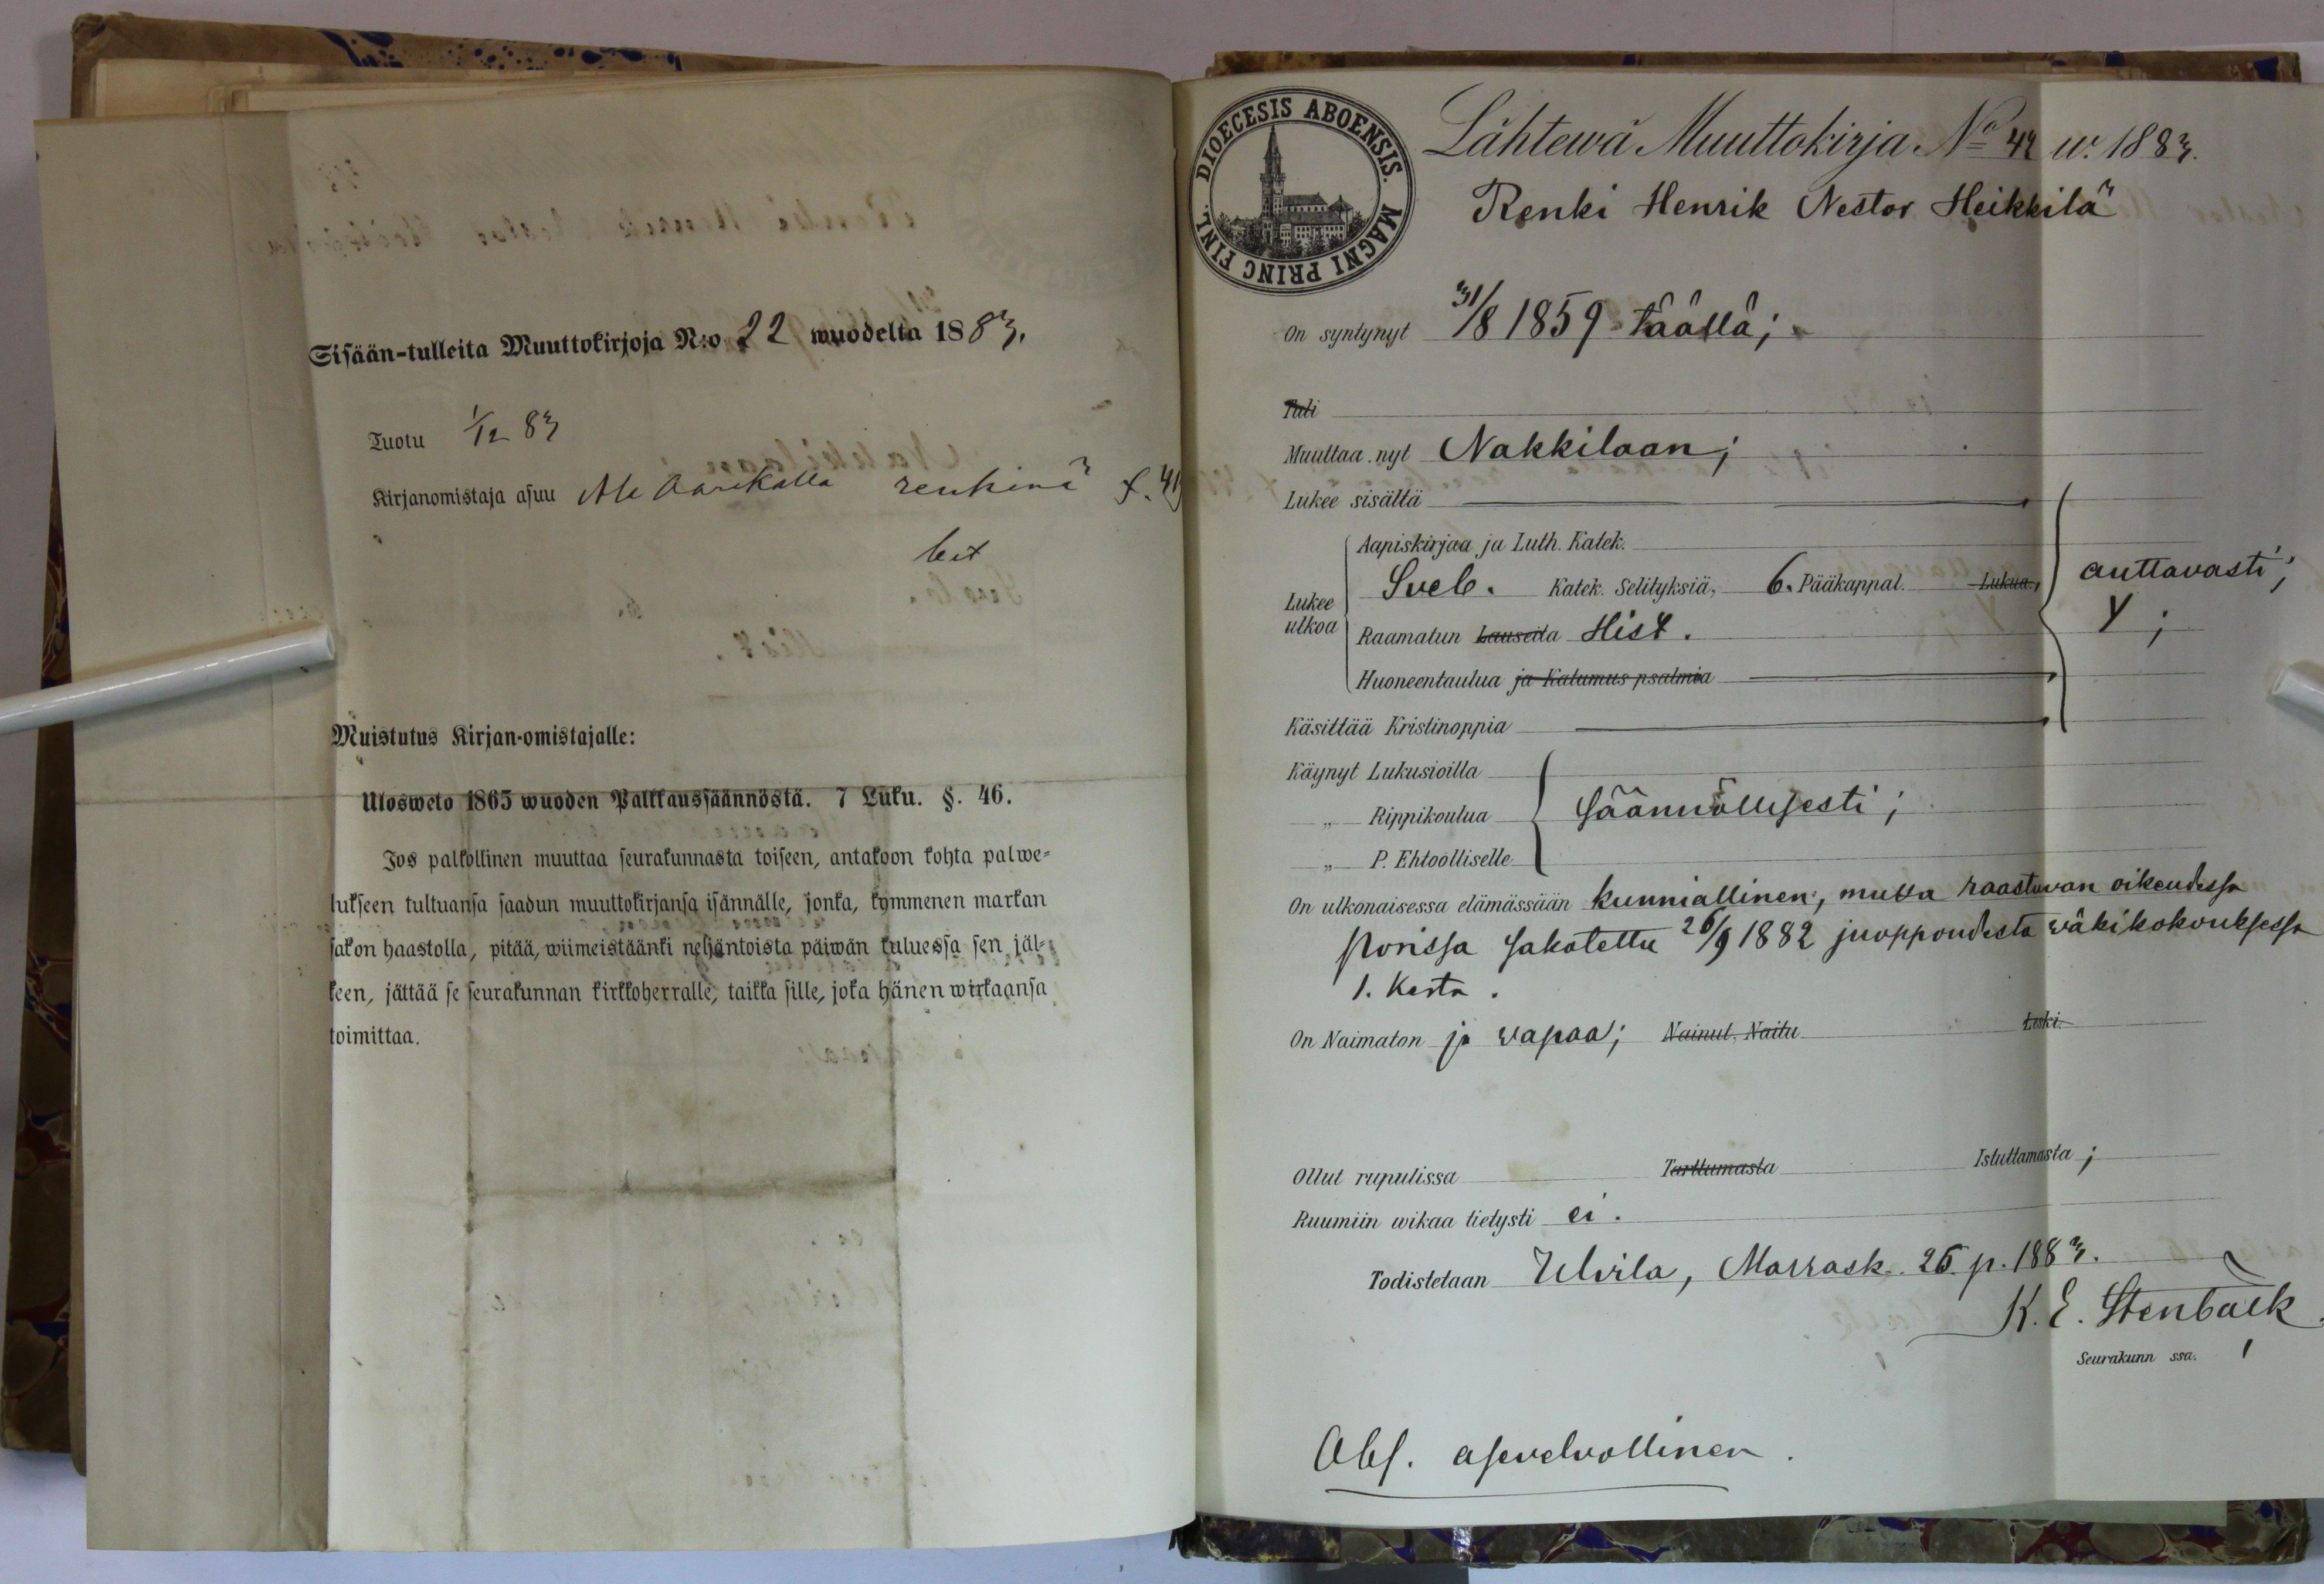 Sisään-tulleita Muuttokirjoja N:o 22 wuodelta 1883.
Tuotu 1/12 83
Kirjanomistaja asuu Ala renkinä f. 41
bet
Muistutus Kirjan-omistajalle:
Ulosweto 1865 wuoden Palkkaussäännöstä. 7 Luku. §. 46.
Jos palkollinen muuttaa seurakunnasta toiseen, antakoon kohta palwe-
lukseen tultuansa saadun muuttokirjansa isännälle, jonka, kymmenen markan
sakon haastolla, pitää, wiimeistäänki neljäntoista päiwän kuluessa sen jäl-
keen, jättää se seurakunnan kirkkoherralle, taikka sille, joka hänen wirkaansa
toimittaa.
DIOECESIS ABOENSIS. MAGNI PRINC FINL.
Lähtewä Muuttokirja No 42 w. 1883.
Renki Henrik Nestor Heikkilä
On syntynyt 31/8 1859 täällä;
Tuli
Muuttaa nyt Nakkilaan;
Lukee sisältä
Aapiskirjaa ja Luth. Katek.
Lukee ulkoa Sveb. Katek. Selityksiä, 6. Pääkappal. Lukua, auttavasti;
Raamatun Lauseita Hist. Y;
Huoneentaulua ja Katumus psalmia
Käsittää Kristinoppia
Käynyt Lukusioilla
„ Rippikoulua säännöllisesti;
„ P. Ehtoolliselle
On ulkonaisessa elämässään kunniallinen, mutta raastuvan oikeudessa
Porissa sakotettu 26/9 1882 juoppoudesta väkikokouksessa
1. kerta.
On Naimaton ja vapaa; Nainut, Naitu Leski.
Ollut rupulissa Tarttumasta Istuttamasta;
Ruumiin wikaa tietysti ei.
Todistetaan Ulvila, Marrask. 26 p. 1883.
K. E. Stenbäck
Seurakunn ssa.
Obs. asevelvollinen.